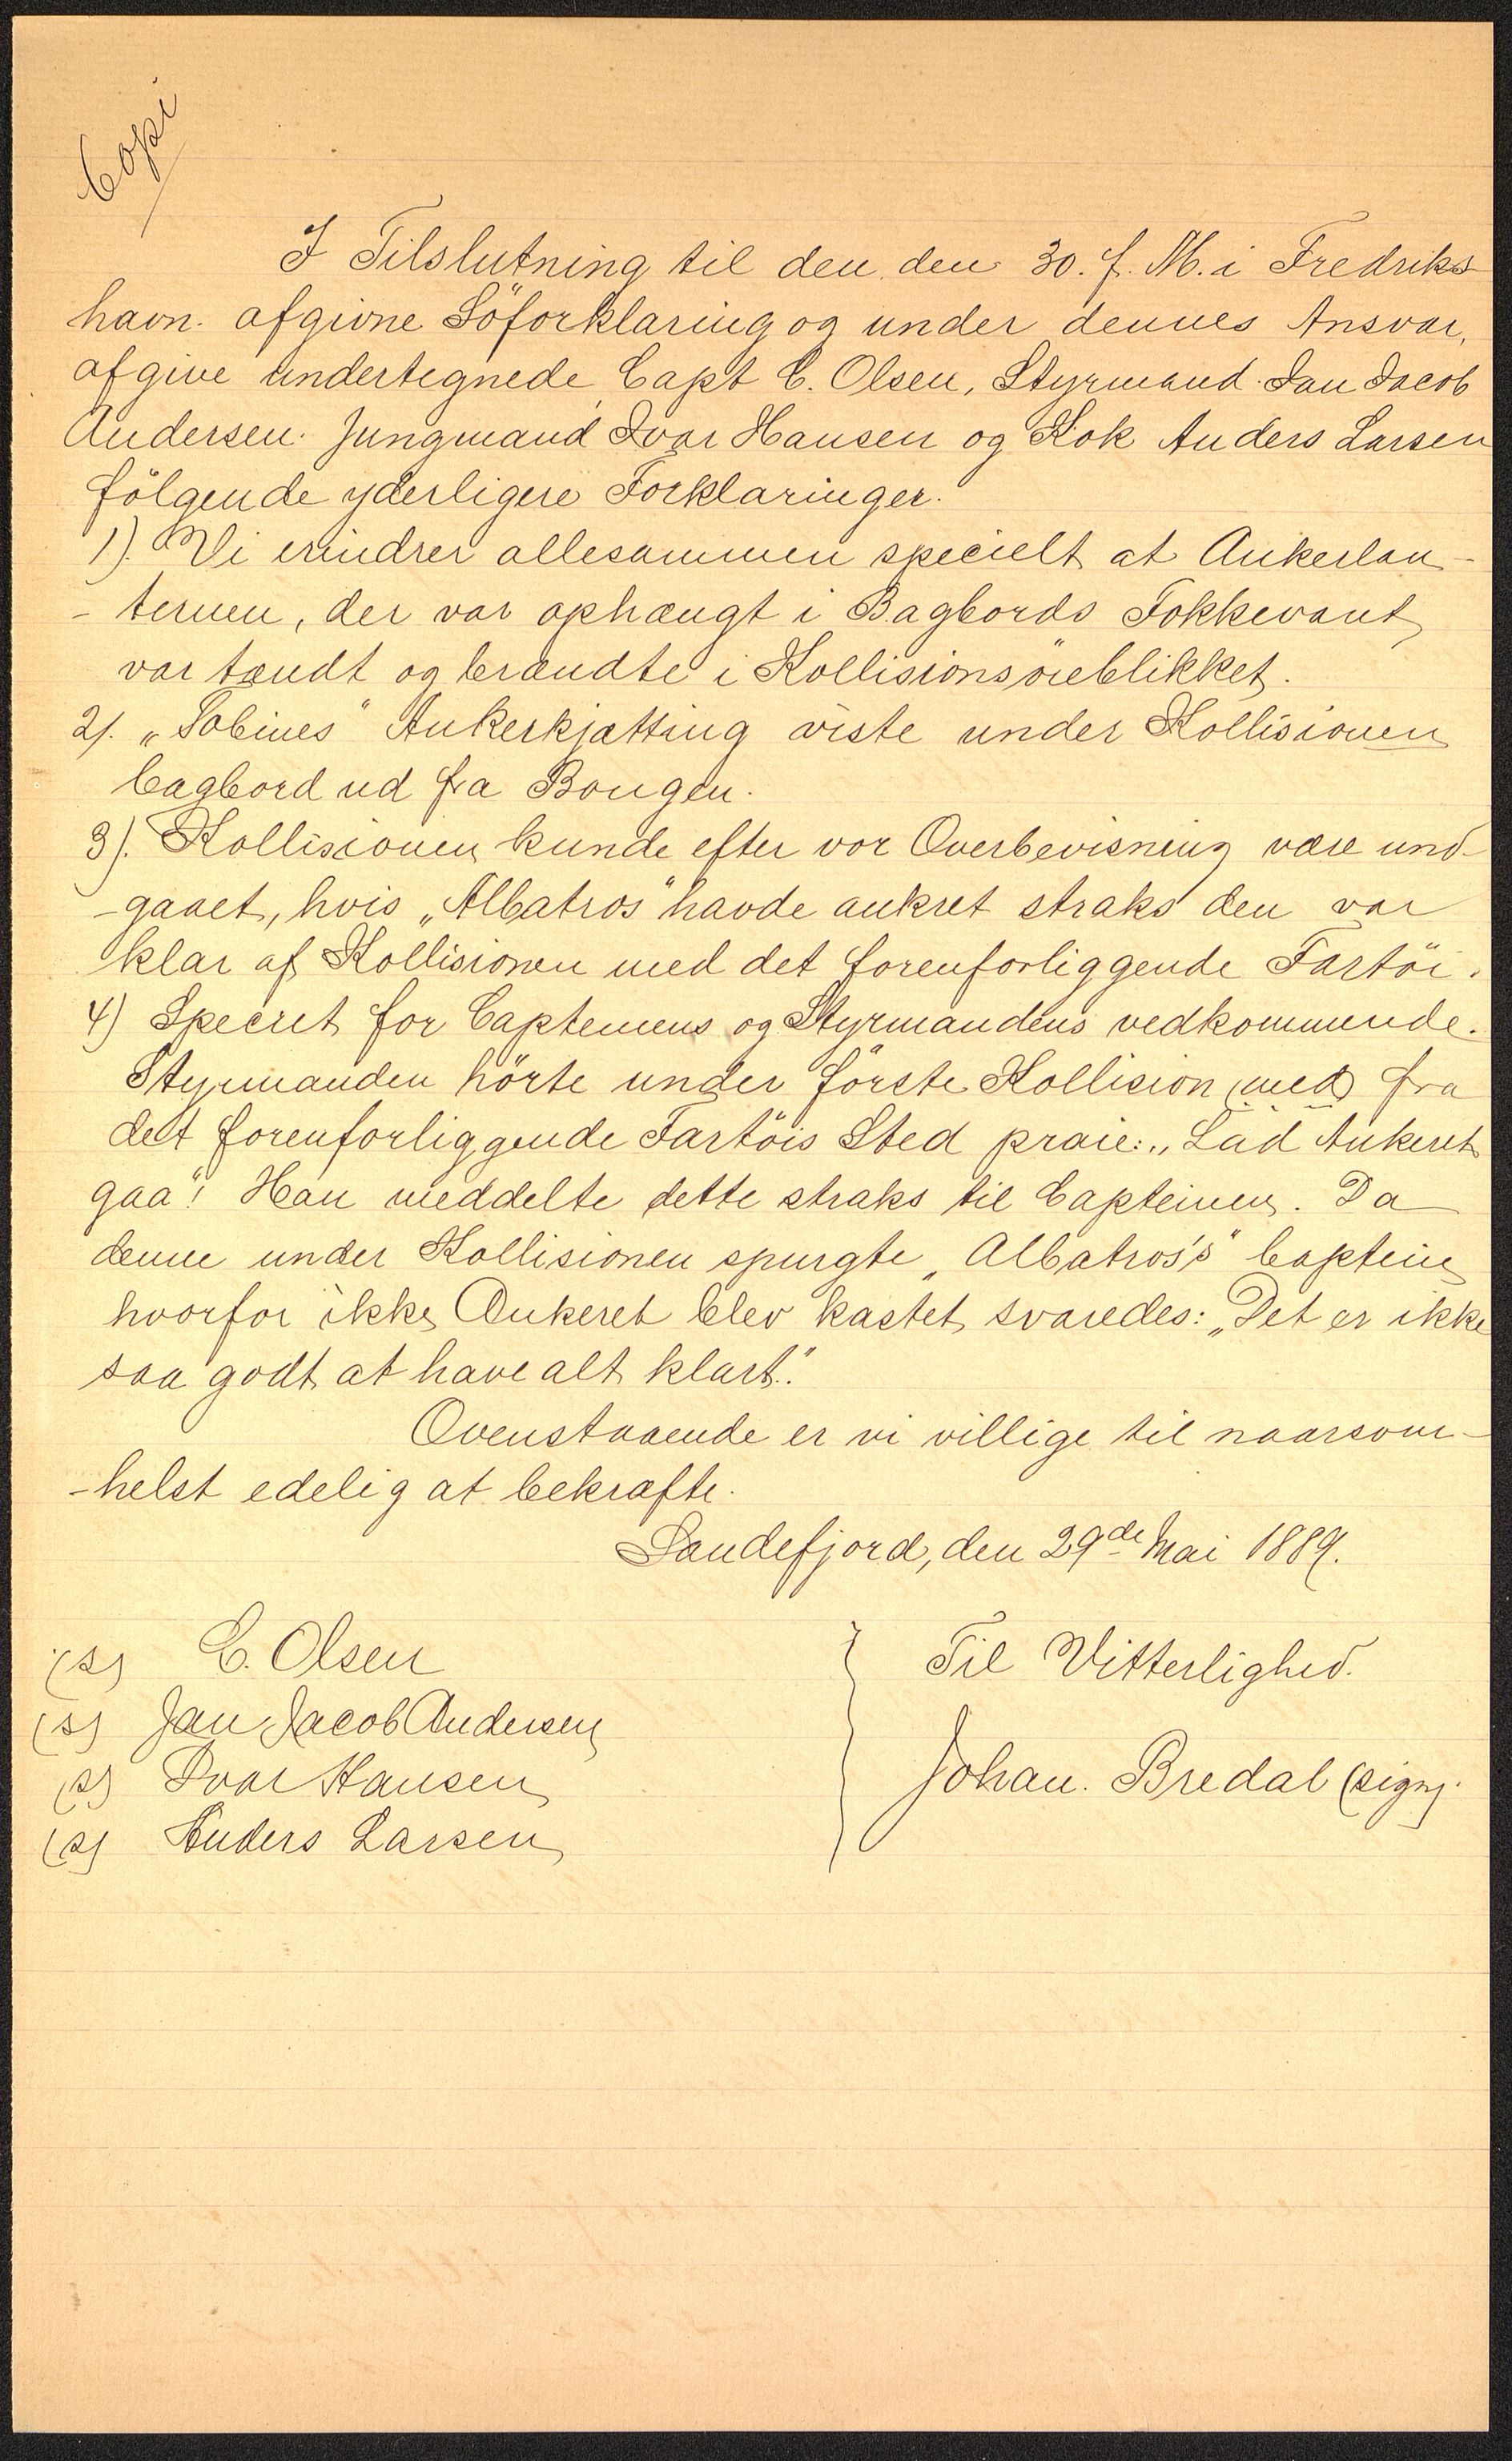 Copi
I Tilslutning til den den 30. f. M. i Fredriks-
havn. afgivne Söforklaring og under dennes Ansvar,
afgive undertegnede Capt C. Olsen, Styrmand. Jan Jacob
Andersen. Jungmand Ivar Hansen og Kok Anders Larsen
fölgende yderligere Forklaringer.
1). Vi erindrer allesammen specielt at Ankerlan-
- ternen, der var ophængt i Bagbords Fokkevant
var tændt og brændte i Kollisionsöieblikket.
2). „Sobines" Ankerkjætting viste under Kollisionen
bagbord ud fra Bougen.
3). Kollisionen kunde efter vor Overbevisning være und-
-gaaet, hvis „Albatros" havde ankret straks den var
klar af Kollisionen med det forenforliggende Fartöi.
4) Specielt for Capteinens og Styrmandens vedkommende.
Styrmanden hörte under förste Kollision (med) fra
det forenforliggende Fartöis Sted praie: „Lad Ankeret
gaa"! Han meddelte dette straks til Capteinen. Da
denne under Kollisionen spurgte „Albatros's" Captein
hvorfor ikke Ankeret blev kastet svaredes: „Det er ikke
saa godt at have alt klart".
Ovenstaaende er vi villige til naarsom-
-helst edelig at bekræfte.
Sandefjord, den 29de Mai 1889.
(s) C. Olsen
(s) Jan Jacob Andersen
(s) Ivar Hansen
(s) Anders Larsen
Til Vitterlighed.
Johan. Bredal (sign).